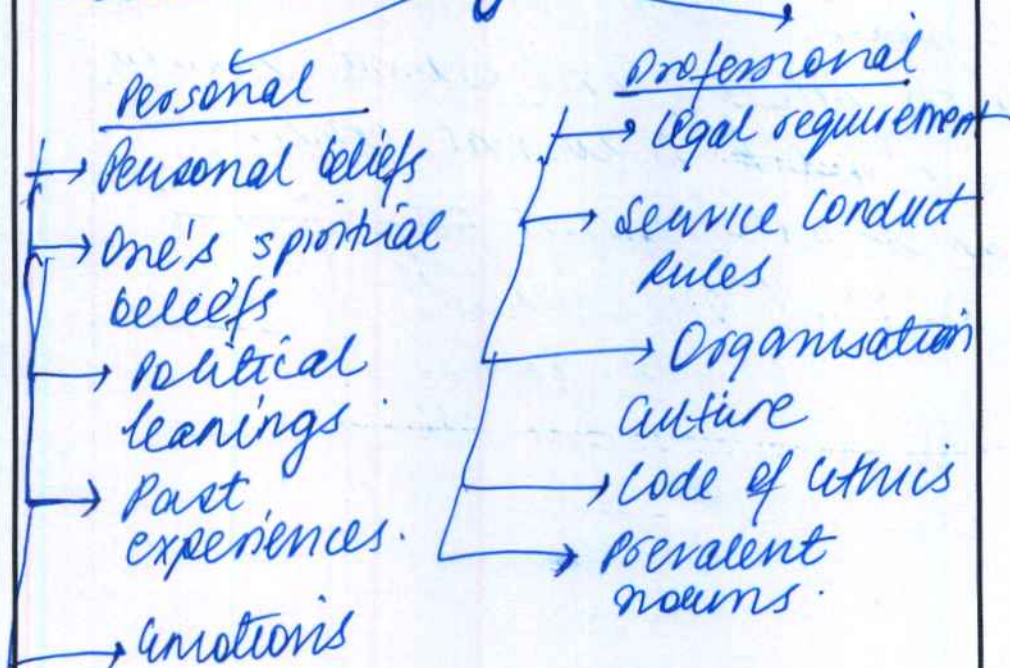 Personal
Personal beliefs
One's spiritual
beliefs
Political
leanings
Past
experiences.
emotions
Professional
legal requirement
Service Conduct
Rules
Organisation
Culture
Code of ethics
Prevalent
norms.